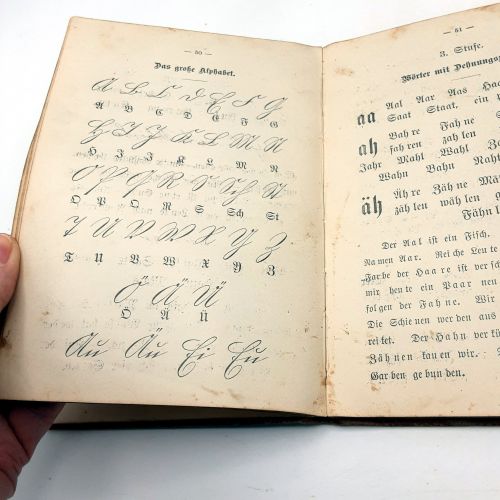 — 50 —
Das große Alphabet.
A B C D E F G
A B C D E F G
H I J K L M N
H I J K L M N
O P Q R S Sch St
O P Q R S Sch St
T U V W X Y Z
T U V W X Y Z
Ö Ä Ü
Ö Ä Ü
Au Äu Ei Eu
— 51 —
3. Stufe.
Wörter mit Dehnungs
aa Aal Aar Aas Haa
Saat Staat. ein P
ah Bahre Fahne S
fahren zählen
Jahr Mahl Wahl Z
Wahn Bahn Nah
äh Ähre Zähne Mä
zählen wählen g
Fähn
Der Aal ist ein Fisch.
Namen Aar. Reiche Leute
Farbe der Haare ist versch
mir heute ein Paar neue
folgen der Fahne. Wir
Die Schienen werden aus
reitet. Der Hahn der kü
Zähnen kauen wir.
Garben gebunden.